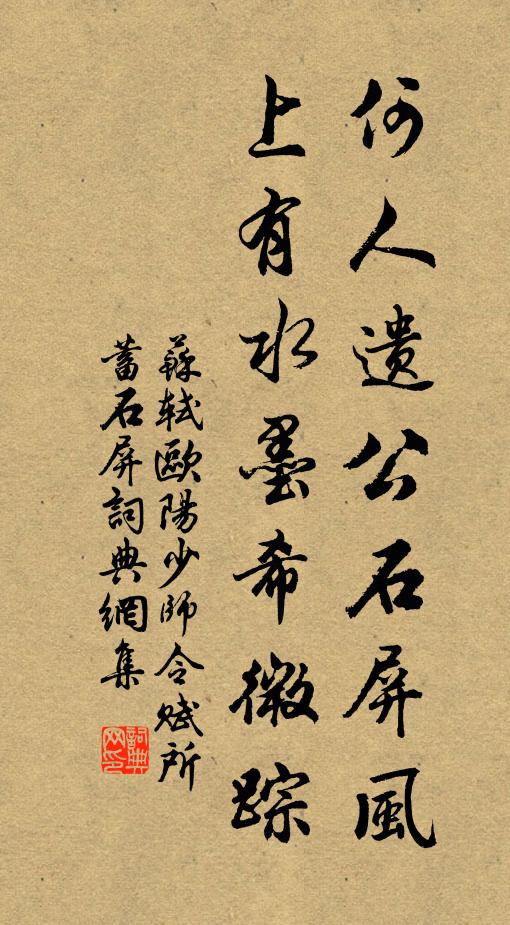 何人遺公石屏風
上有水墨希微踪
蘇軾歐陽少師令賦所
蓄石屏詞典網集
詞典網印